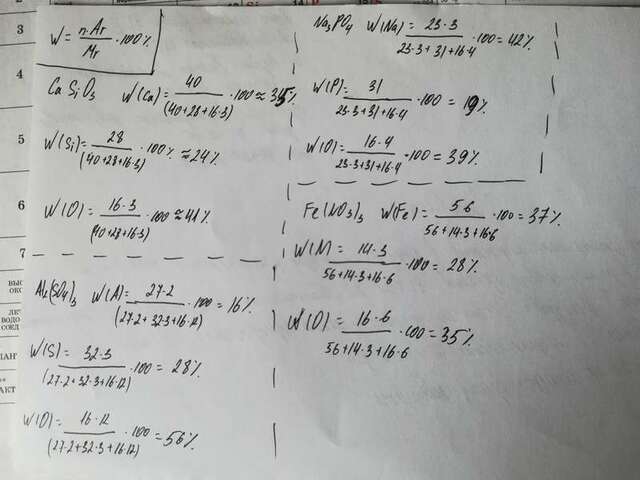 W = n·Ar / Mr · 100%
CaSiO₃ W(Ca) = 40 / (40+28+16·3) · 100 ≈ 35%
W(Si) = 28 / (40+28+16·3) · 100% ≈ 24%
W(O) = 16·3 / (40+28+16·3) · 100 ≈ 41%
Al₂(SO₄)₃ W(A) = 27·2 / (27·2+32·3+16·12) · 100 = 16%
W(S) = 32·3 / (27·2+32·3+16·12) · 100 = 28%
W(O) = 16·12 / (27·2+32·3+16·12) · 100 = 56%
Na₃PO₄ W(Na) = 23·3 / 23·3+31+16·4 · 100 = 42%
W(P) = 31 / 23·3+31+16·4 · 100 = 19%
W(O) = 16·4 / 23·3+31+16·4 · 100 = 39%
Fe(NO₃)₃ W(Fe) = 56 / 56+14·3+16·6 · 100 = 37%
W(N) = 14·3 / 56+14·3+16·6 · 100 = 28%
W(O) = 16·6 / 56+14·3+16·6 · 100 = 35%
3
4
5
6
7